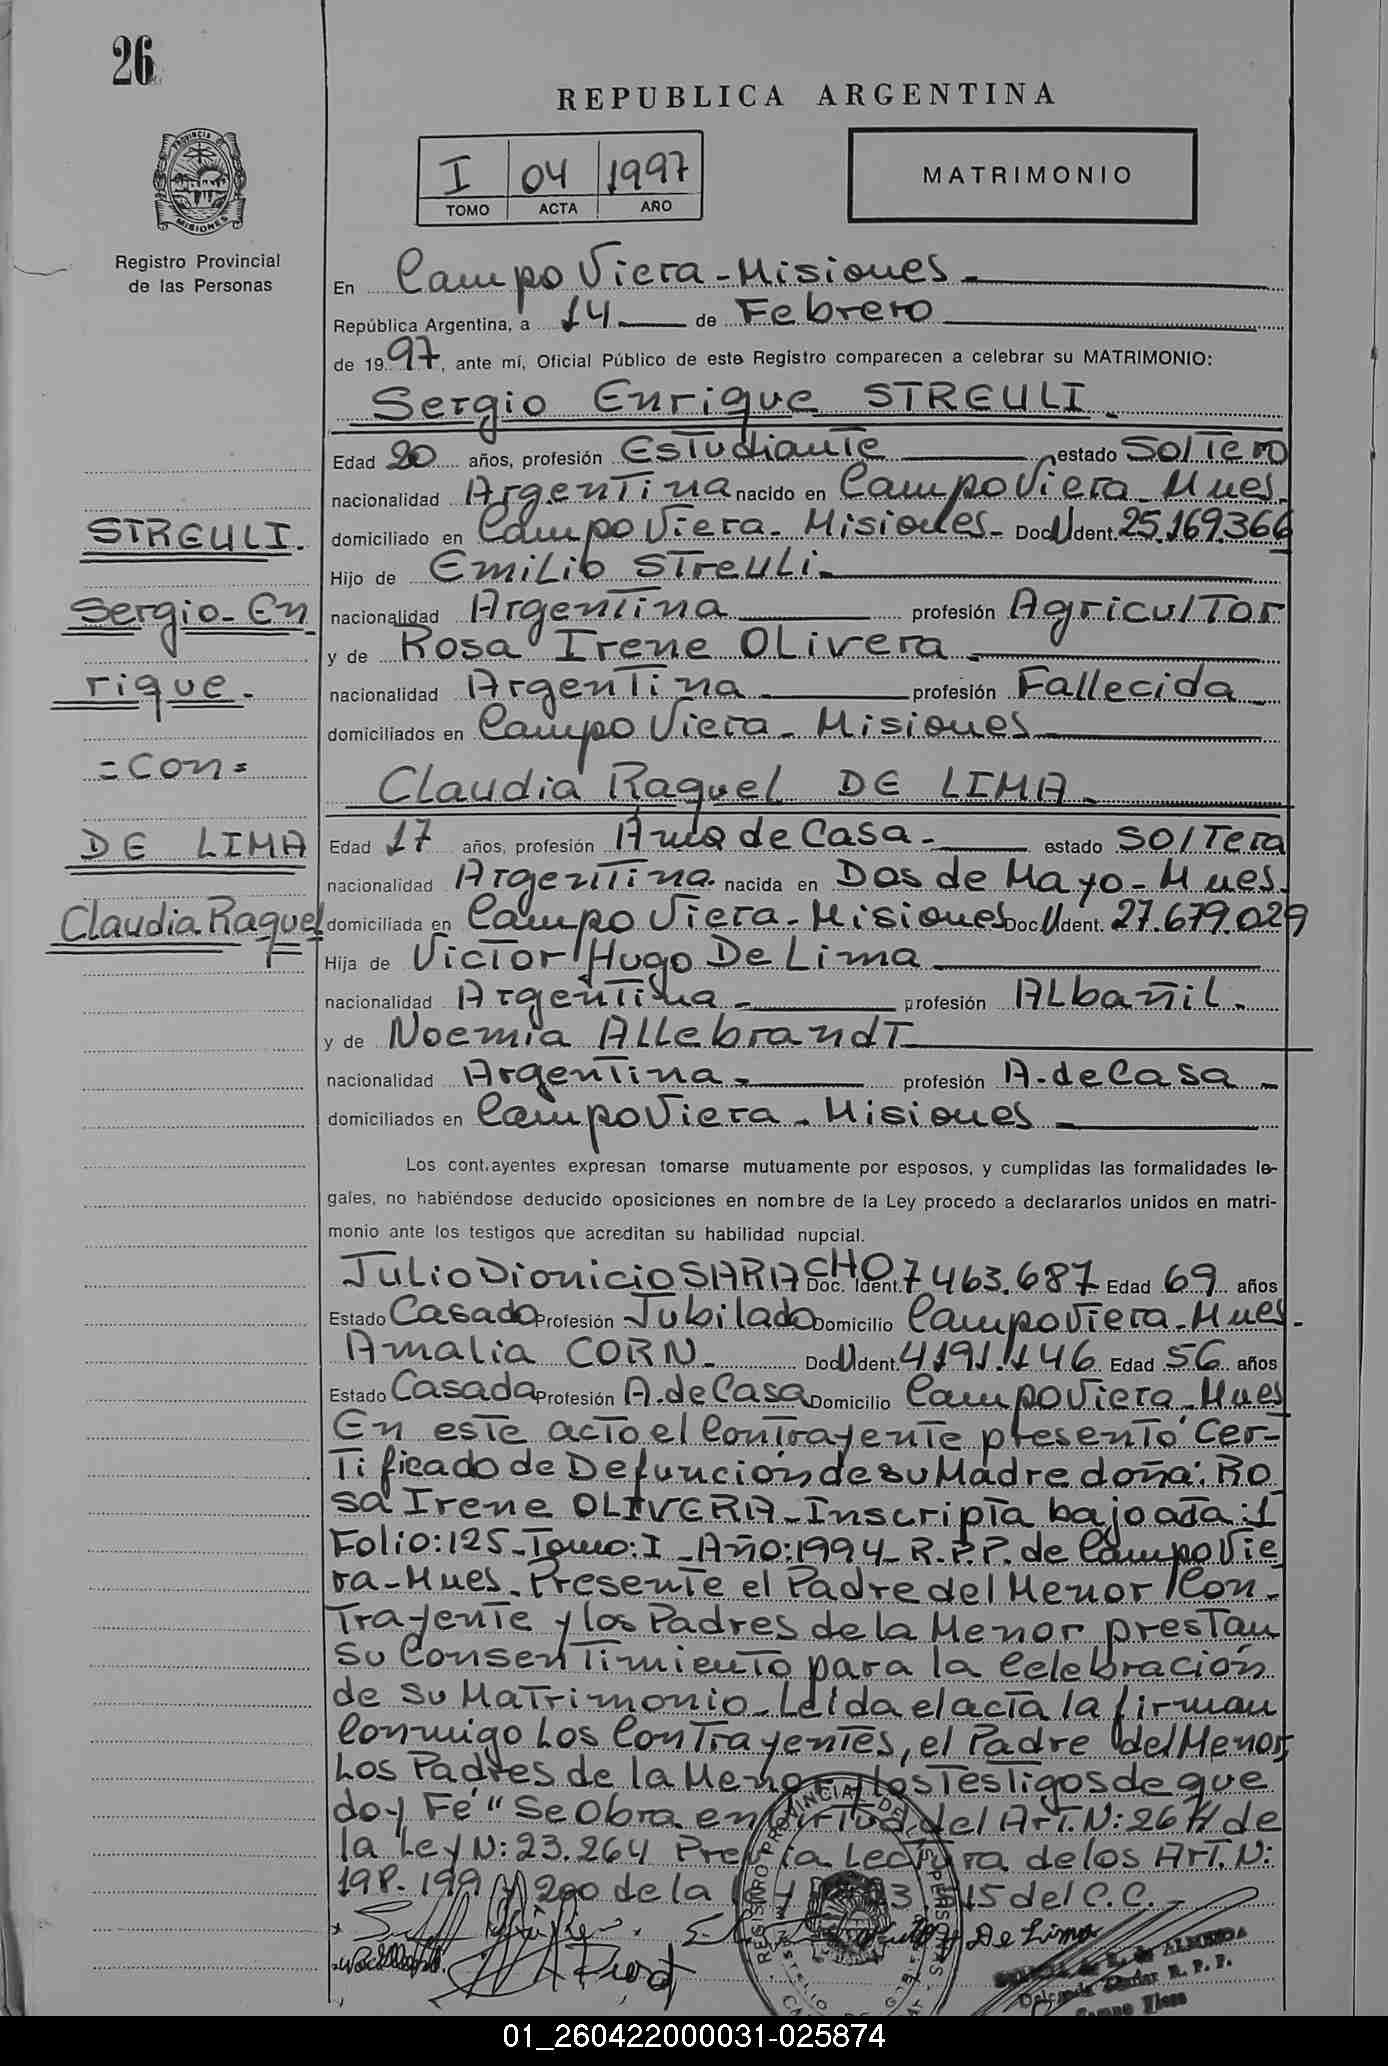 26
REPUBLICA ARGENTINA
I 04 1997
TOMO ACTA AÑO
MATRIMONIO
PROVINCIA DE MISIONES
Registro Provincial
de las Personas
En Campo Viera - Misiones -
República Argentina, a 14 de Febrero
de 1997, ante mí, Oficial Público de este Registro comparecen a celebrar su MATRIMONIO:
Sergio Enrique STREULI.
Edad 20 años, profesión Estudiante estado Soltero
nacionalidad Argentina nacido en Campo Viera - Mnes.
domiciliado en Campo Viera - Misiones - Doc U Ident. 25.169.366
Hijo de Emilio Streuli -
nacionalidad Argentina profesión Agricultor
y de Rosa Irene Olivera -
nacionalidad Argentina profesión Fallecida
domiciliados en Campo Viera - Misiones
STREULI.
Sergio - En
rique -
= con =
DE LIMA
Claudia Raquel
Claudia Raquel DE LIMA -
Edad 17 años, profesión Ama de Casa - estado Soltera
nacionalidad Argentina. nacida en Dos de Mayo - Mnes.
domiciliada en Campo Viera - Misiones Doc U Ident. 27.679.029
Hija de Victor Hugo De Lima
nacionalidad Argentina - profesión Albañil -
y de Noemia Allebrandt
nacionalidad Argentina - profesión A. de Casa -
domiciliados en Campo Viera - Misiones -
Los contrayentes expresan tomarse mutuamente por esposos, y cumplidas las formalidades le-
gales, no habiéndose deducido oposiciones en nombre de la Ley procedo a declararlos unidos en matri-
monio ante los testigos que acreditan su habilidad nupcial.
Julio Dionicio SARACHO Doc. Ident. 7463.687 Edad 69 años
Estado Casado Profesión Jubilado Domicilio Campo Viera - Mnes.
Amalia CORN - Doc U Ident. 4191.146 Edad 56 años
Estado Casada Profesión A. de Casa Domicilio Campo Viera - Mnes
En este acto el Contrayente presentó Cer-
tificado de Defunción de su Madre doña: Ro
sa Irene OLIVERA - Inscripta bajo acta: 1
Folio: 125 - Tomo: I - Año: 1994 - R.P.P. de Campo Vie
ra - Mnes. Presente el Padre del Menor Con-
trayente y los Padres de la Menor prestan
su Consentimiento para la Celebración
de su Matrimonio - Leída el acta la firman
Conmigo Los Contrayentes, el Padre del Menor,
Los Padres de la Menor y los Testigos de que
doy Fé" Se Obra en virtud del Art. N: 264 de
la Ley N: 23.264 Previa Lectura de los Art. N:
198. 199 y 200 de la Ley 23 15 del C.C. -
De Lima
ALMEIDA
Delegada Titular R. P. P.
Campo Viera
REGISTRO PROVINCIAL DE LAS PERSONAS
01_260422000031-025874